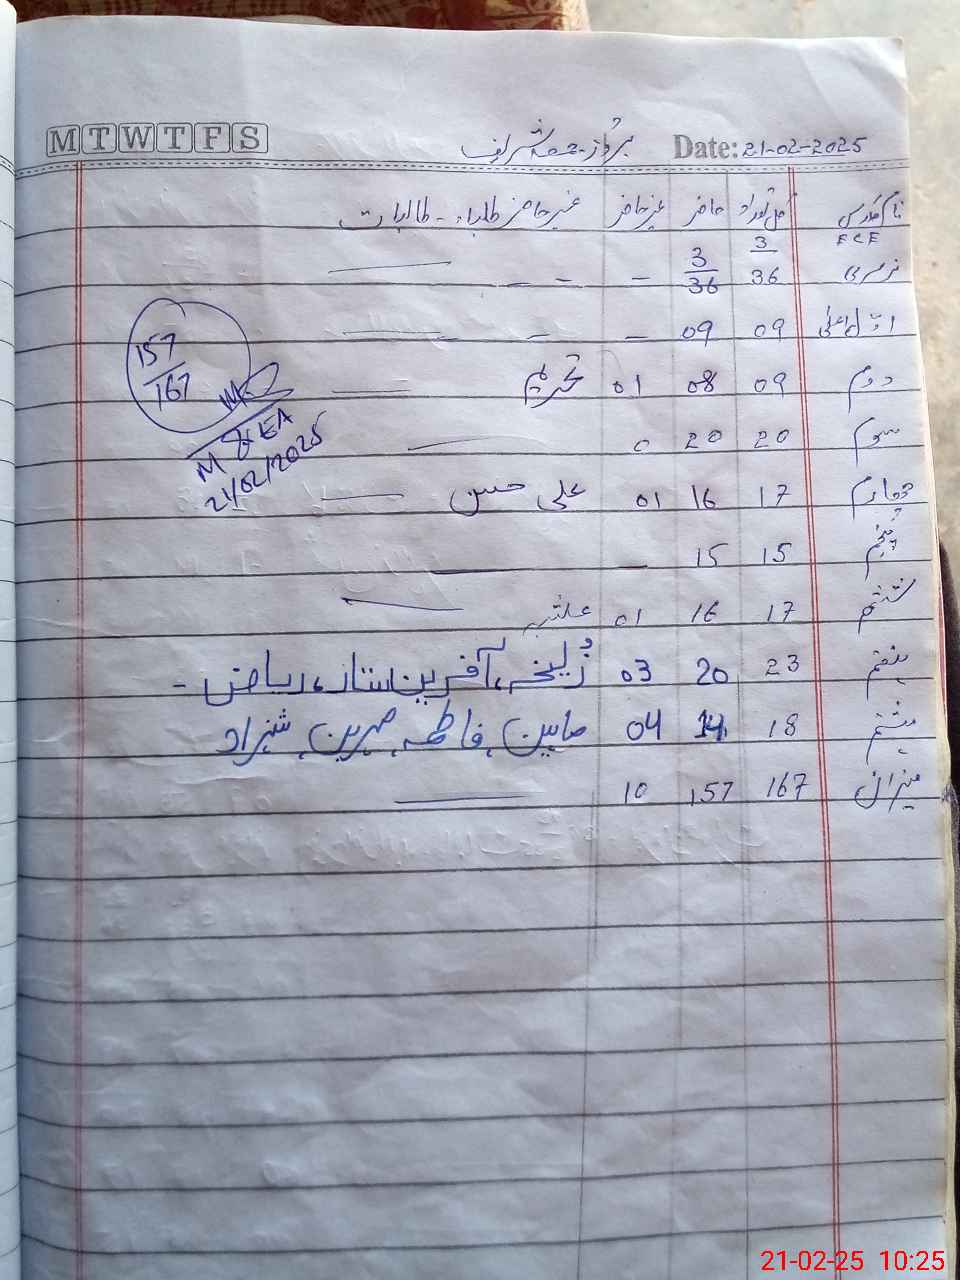 M T W T F S
بروز جمعۃ شریف Date: 21-02-2025
نام مدرس کل تعداد حاضر غیرحاضر غیرحاضر طلباء - طالبات
ECE 3 3
نرسری 36 36 - - -
اول اعلی 09 09 - - -
دوم 09 08 01 تحریم
سوم 20 20 0
چہارم 17 16 01 علی حسن
پنجم 15 15 -
ششم 17 16 01
ہفتم 23 20 03 زلیخہ، آفرین ستار، ریاض -
ہشتم 18 14 04 ماہین، فاطمہ، مہرین، شہزاد
میزان 167 157 10
157
167
M & EA
21/02/2025
21-02-25 10:25